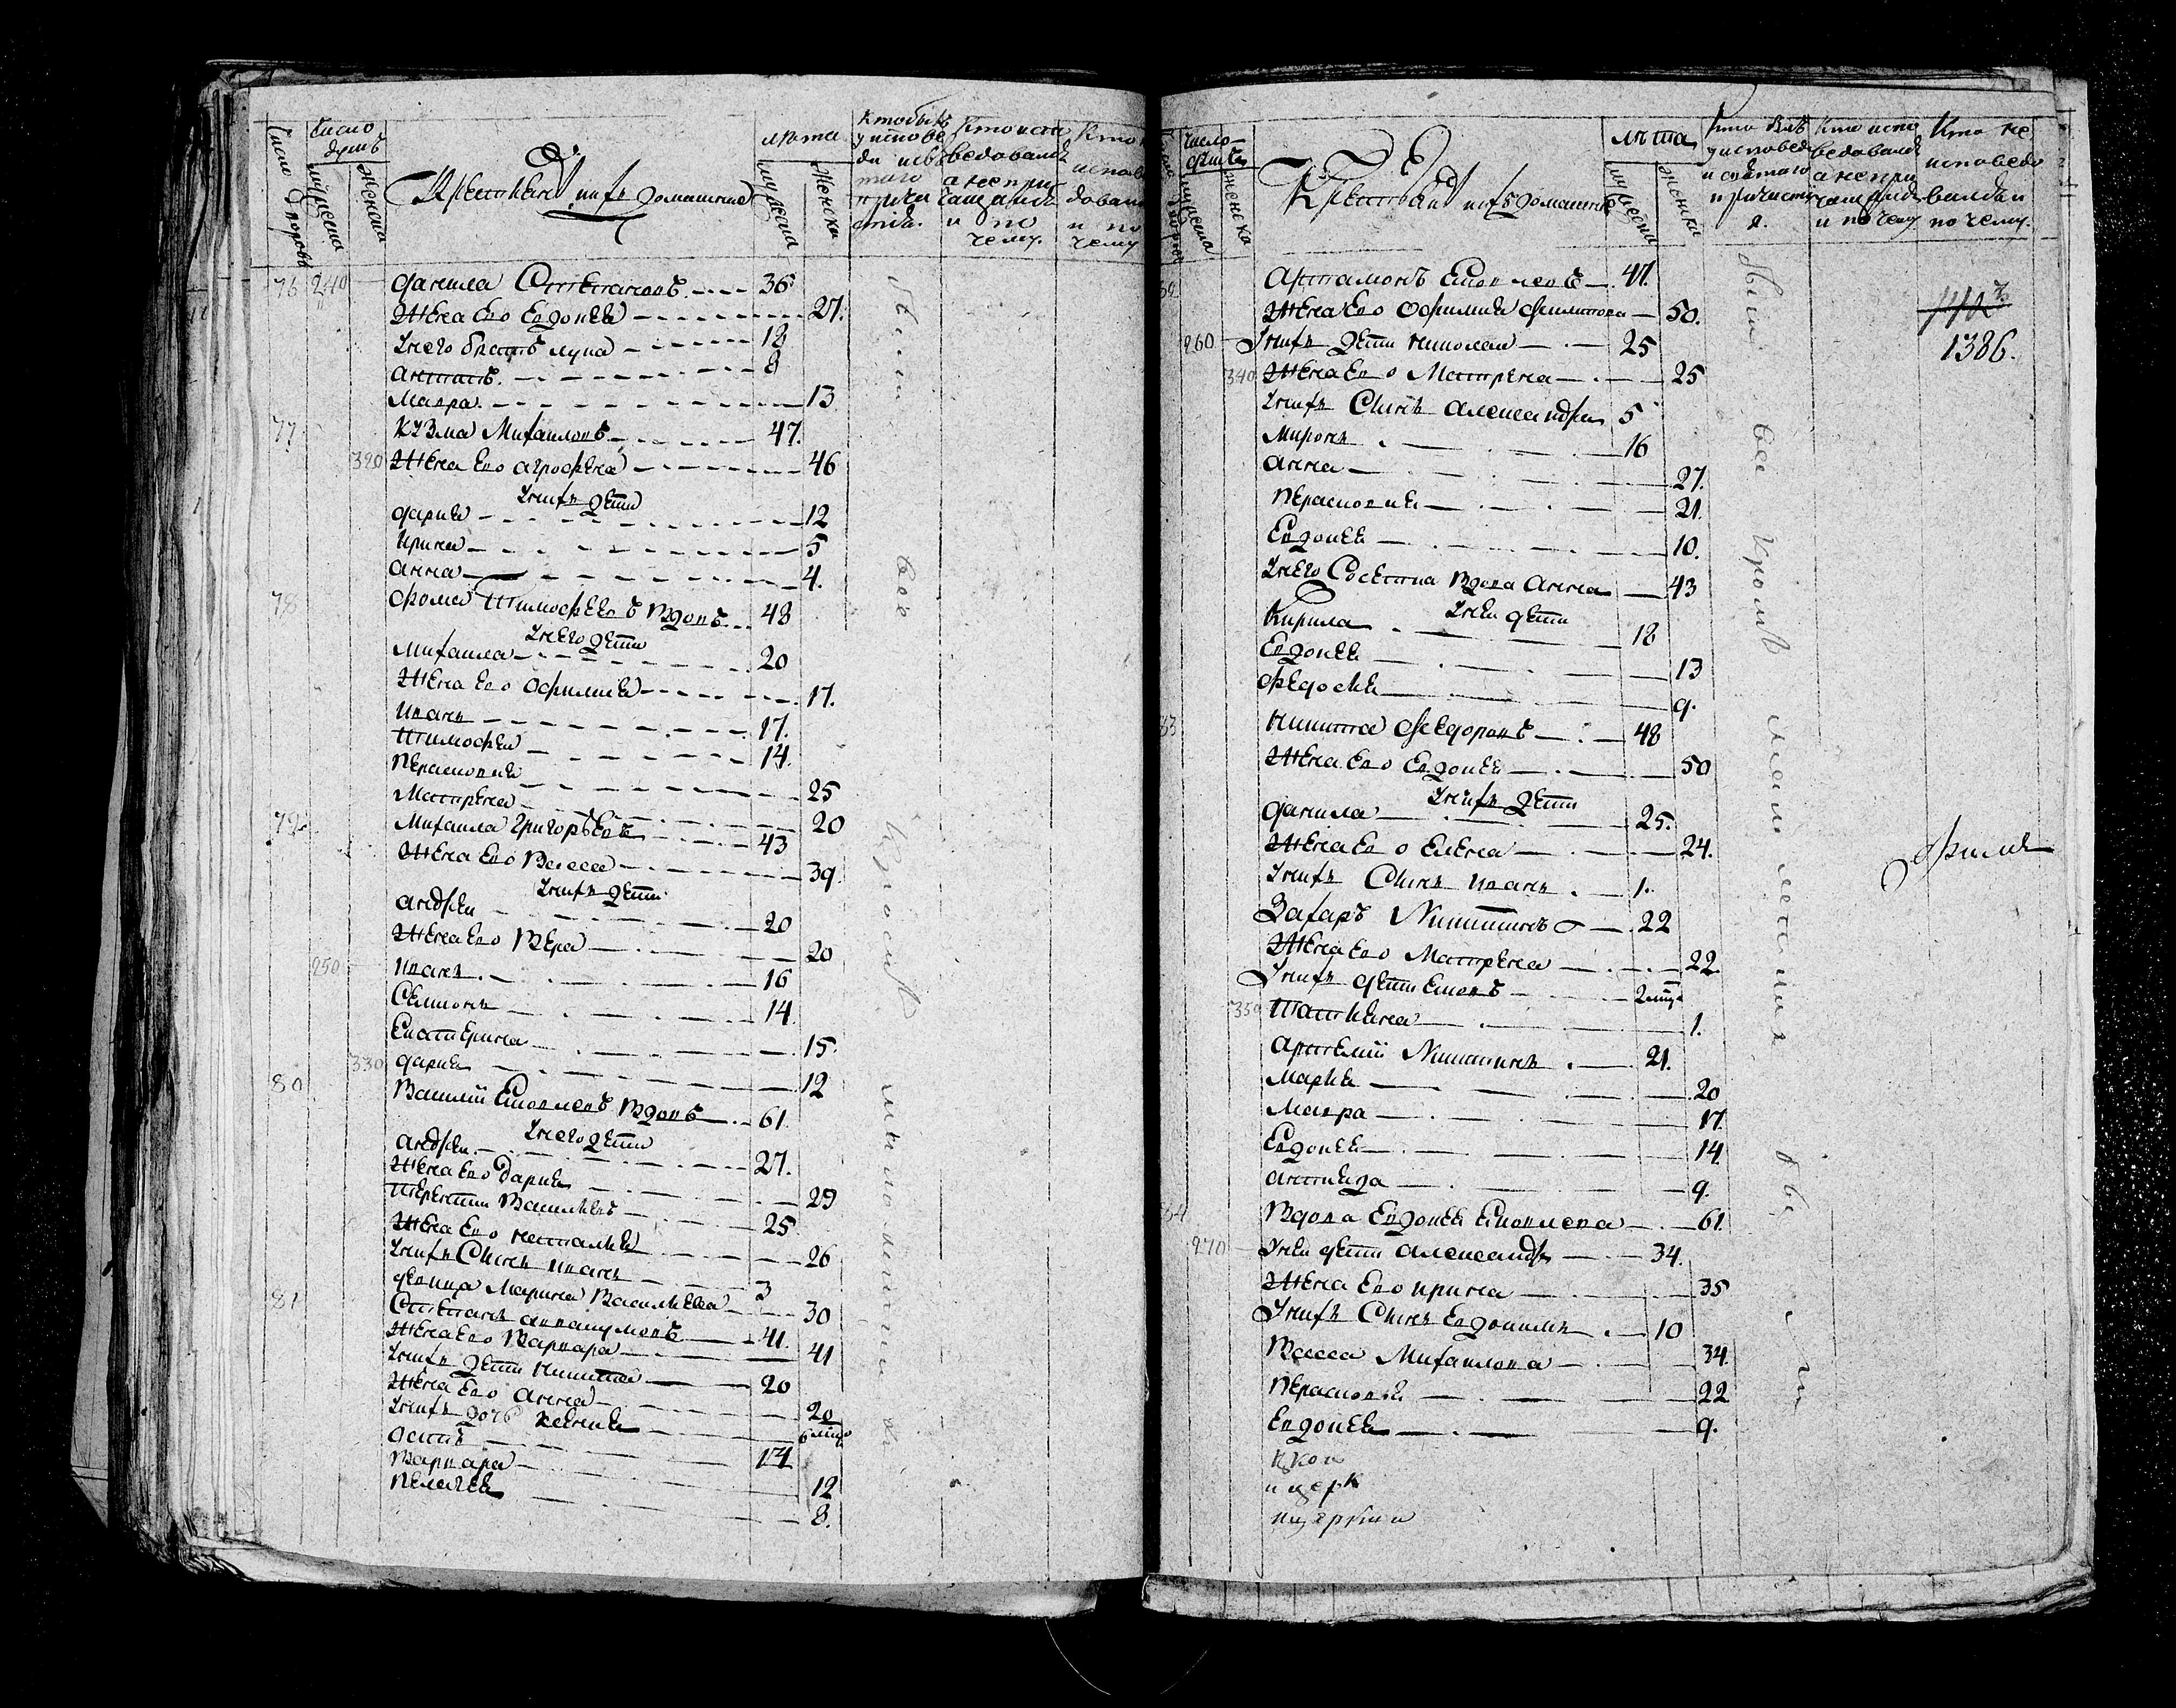 Число дворовъ
Число душъ
мужеска
женска
Крестьяне и ихъ домашние
лѣта
мужеска
женска
Кто былъ у исповеди и святаго причастия.
Кто исповедовался а не причащался и по чему.
Кто исповедовал и по чему
76 240 Данила Степановъ 36
Жена Ево Евдокея 27.
У него братъ Лука 18
Антипъ. 8
Мавра. 13
77 Кузма Михаиловъ 47.
320 Жена Ево Агрофена 46
У нихъ дети
Дарья 12
Ирина 5
Анна 4.
78 Фома Тимофеевъ вдовъ 48
У него дети
Михаила 20
Жена Ево Офимия 17.
Иванъ 17.
Тимофеи 14.
Перасковия 25
Матрена 20
79 Михаила Григорьевъ 43
Жена Ево Васса 39.
У нихъ дети
Андреи 20
Жена Ево Вера 20
250 Иванъ 16
Семионъ 14.
Екатерина 15.
330 Дарья 12
80 Василии Яковлевъ вдовъ 61.
У него дети
Андреи 27.
Жена Ево Дарья 29
Терентии Васильевъ 25
Жена Ево Наталья 26
У нихъ сынъ Иванъ 3
девица Марина Васильева 30
81 Степанъ 41.
Жена Ево Варвара 41
У нихъ дети Никита 20
Жена Ево Анна 20
У нихъ дочь Ксения 6 мцъ
Осипъ 14
Варвара 12
Пелагея 8.
были все кроме малолетних
число душъ
мужеска
женска
Крестьяне и ихъ домашние
лѣта
мужеска
женска
Кто былъ у исповеди и святаго причастия.
Кто исповедовался а не причащался и по чему
Кто не исповедовался и по чему.
82 Артамонъ Яковлевъ 47.
Жена Ево Офимия Филипова 50.
260 У нихъ дети Николаи 25
340 Жена Ево Матрена 25
У нихъ сынъ Александра 5
Миронъ 16
Анна 27.
Перасковия 21.
Евдокея 10.
У него вдова Анна 43
У неи дети
Кирила 18
Евдокея 13
Федосья 9.
83 Никита Федоровъ 48
Жена Ево Евдокея 50
У нихъ дети
Данила 25.
Жена Ево Елена 24.
У нихъ сынъ Иванъ 1.
Захаръ Никитинъ 22
Жена Ево Матрена 22
У нихъ дети 2 мцъ
350 Татияна 1.
Артемии Никитинъ 21.
Марья 20
Мавра 17
Евдокея 14
Антонида 9.
84 Вдова Евдокея Яковлева 61
270 У неи дети Александръ 34.
Жена Ево Ирина 35
У нихъ сынъ Евдокимъ 10
Васса Михаилова 34.
Перасковия 22
Евдокея 9.
были все кроме малолетних
1386.